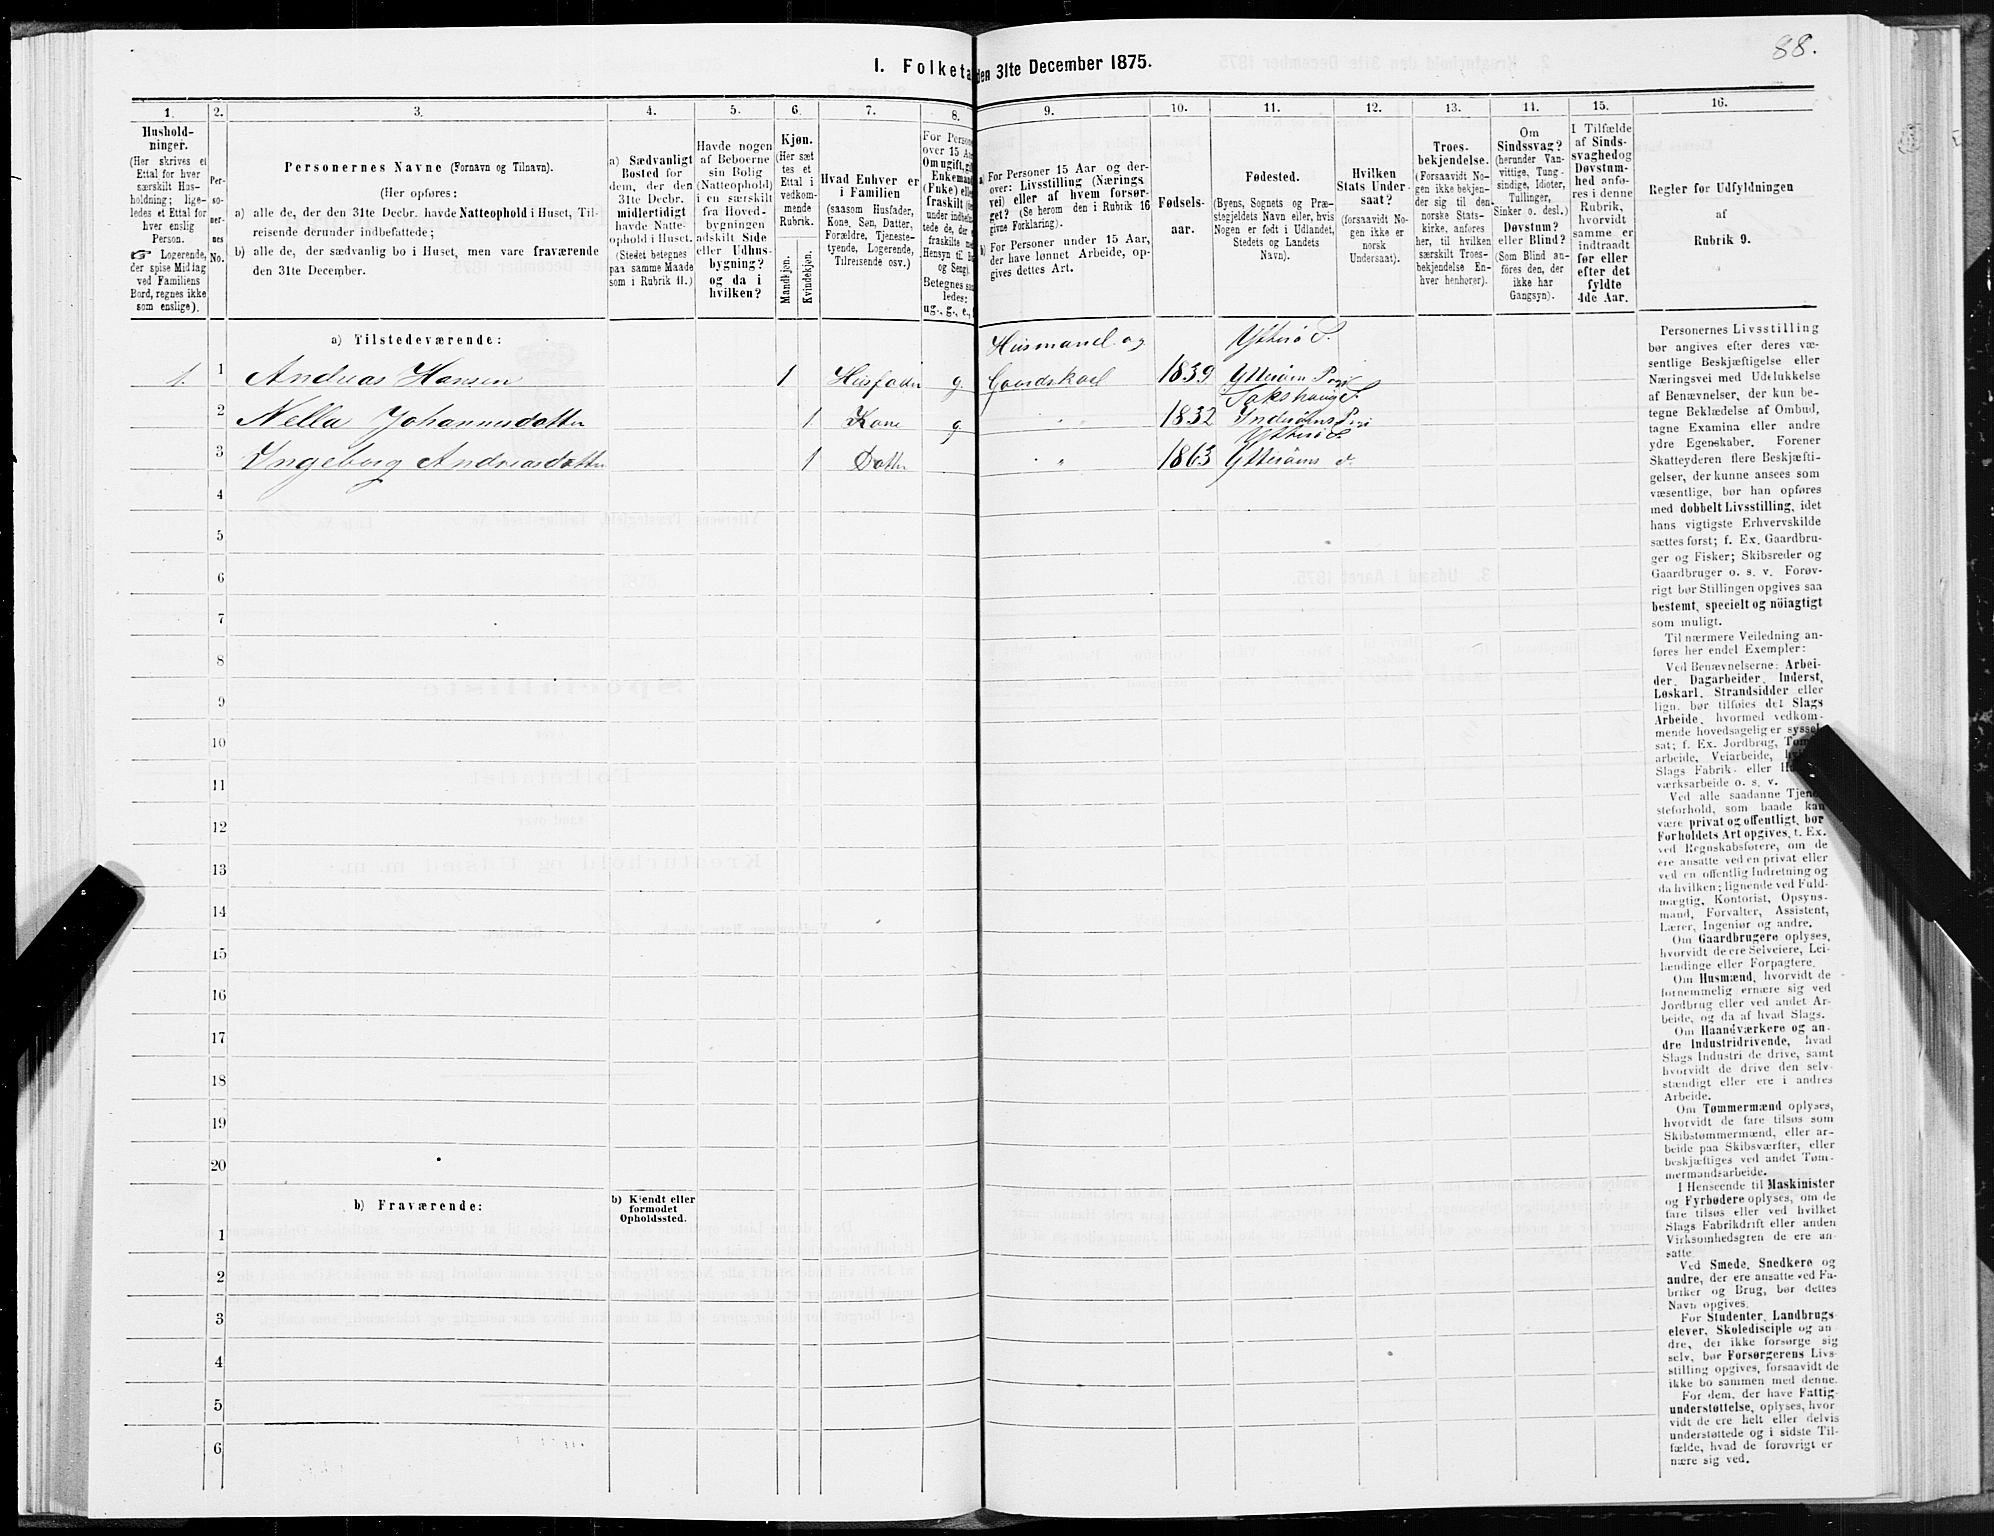 88.
I. Folketa
den 31te December 1875.
1. 2. 3. 4. 5. 6. 7. 8. 9. 10. 11. 12. 13. 14. 15. 16.
Hushold-
ninger.
(Her skrives et
Ettal for hver
særskilt Hus-
holdning; lige-
ledes et Ettal for
hver enslig
Person.
☞ Logerende,
der spise Middag
ved Familiens
Bord, regnes ikke
som enslige).
Per-
so-
ner-
nes
No.
Personernes Navne (Fornavn og Tilnavn).
(Her opføres:
a) alle de, der den 31te Decbr. havde Natteophold i Huset, Til-
reisende derunder indbefattede;
b) alle de, der sædvanlig bo i Huset, men vare fraværende
den 31te December.
a) Sædvanligt
Bosted for
dem, der den
31te Decbr.
midlertidigt
havde Natte-
ophold i Huset.
(Stedet betegnes
paa samme Maade
som i Rubrik 11.)
Havde nogen
af Beboerne
sin Bolig
(Natteophold)
i en særskilt
fra Hoved-
bygningen
adskilt Side
eller Udhus-
bygning?
og da i
hvilken?
Kjøn.
(Her sæt
tes et
Ettal i
vedkom-
mende
Rubrik.
Mandkjøn.
Kvindekjøn.
Hvad Enhver er
i Familien
(saasom Husfader,
Kone, Søn, Datter,
Forældre, Tjeneste-
tyende, Logerende,
Tilreisende osv.).
For Persone
over 15 Aa
Om ugift, gif
Enkemand
(Enke) elle
fraskilt
under indbefat-
tede de, de
fraskilte
Hensyn til B
og Seng).
Betegnes saa
ledes:
ug., g., e.,
a) For Personer 15 Aar og der-
over: Livsstilling (Nærings
vei) eller af hvem forsør-
get? (Se herom den i Rubrik 16
givne Forklaring).
b) For Personer under 15 Aar,
der have lønnet Arbeide, op-
gives dettes Art.
Fødsels-
aar.
Fødested.
(Byens, Sognets og Præ-
stegjeldets Navn eller, hvis
Nogen er født i Udlandet,
Stedets og Landets
Navn).
Hvilken
Stats Under-
saat?
(forsaavidt No-
gen ikke er
norsk
Undersaat).
Troes-
bekjendelse.
(Forsaavidt No-
gen ikke bekjen-
der sig til den
norske Stats-
kirke, anføres
her, til hvilken
særskilt Troes-
bekjendelse En-
hver henhører).
Om
Sindssvag?
(herunder Van-
vittige, Tung-
sindige, Idioter,
Tullinger,
Sinker o. desl.)
Døvstum?
eller Blind?
(Som Blind an-
føres den, der
ikke har
Gangsyn).
I Tilfælde
af Sinds-
svaghed og
Døvstum-
hed anfø-
res i denne
Rubrik,
hvorvidt
samme er
indtraadt
før eller
efter det
fyldte
4de Aar.
Regler for Udfyldningen
af
Rubrik 9.
a) Tilstedeværende:
Husmand og Ytterø S.
1. 1 Andreas Hansen 1 Husfader g. Gaardskarl 1839 Ytterøens Pgj
Sakshaug S.
2 Nella Johannesdatter 1 Kone g " " 1832 Inderøens Pgj
Ytterø S.
3 Ingeborg Andreasdatter 1 Datter " 1863 Ytterøens d.
4
5
6
7
8
9
10
11
12
13
14
15
16
17
18
19
20
b) Fraværende:
b) Kjendt eller
formodet
Opholdssted.
1
2
3
4
5
6
Personernes Livsstilling
bør angives efter deres væ-
sentlige Beskjæftigelse eller
Næringsvei med Udelukkelse
af Benævnelser, der kun be-
tegne Beklædelse af Ombud,
tagne Examina eller andre
ydre Egenskaber. Forener
Skatteyderen flere Beskjæfti-
gelser, der kunne ansees som
væsentlige, bør han opføres
med dobbelt Livsstilling, idet
hans vigtigste Erhvervskilde
sættes først; f. Ex. Gaardbru-
ger og Fisker; Skibsreder og
Gaardbruger o. s. v. Forøv-
rigt bør Stillingen opgives saa
bestemt, specielt og nöiagtigt
som muligt.
Til nærmere Veiledning an-
føres her endel Exempler:
Ved Benævnelserne: Arbei-
der, Dagarbeider, Inderst,
Løskarl, Strandsidder eller
lign. bør tilføies det Slags
Arbeide, hvormed vedkom-
mende hovedsagelig er syssel-
sat; f. Ex. Jordbrug, Tøm
arbeide, Veiarbeide,
Slags Fabrik- eller
værksarbeide o. s. v.
Ved alle saadanne Tjene
steforhold, som baade kan
være privat og offentligt, bør
Forholdets Art opgives, t. Ex.
ved Regnskabsførere, om de
ere ansatte ved en privat eller
ved en offentlig Indretning og
da hvilken; lignende ved Fuld-
mægtig, Kontorist, Opsyns-
mand, Forvalter, Assistent,
Lærer, Ingeniør og andre.
Om Gaardbrugere oplyses,
hvorvidt de ere Selveiere, Lei-
lændinge eller Forpagtere.
Om Husmænd, hvorvidt de
fornemmelig ernære sig ved
Jordbrug eller ved andet Ar-
beide, og da af hvad Slags.
Om Haandværkere og an-
dre Industridrivende, hvad
Slags Industri de drive, samt
hvorvidt de drive den selv-
stændigt eller ere i andres
Arbeide.
Om Tømmermænd oplyses,
hvorvidt de fare tilsøs som
Skibstømmermænd, eller ar-
beide paa Skibsværfter, eller
beskjæftiges ved andet Tøm-
mermandsarbeide.
I Henseende til Maskinister
og Fyrbødere oplyses, om de
fare tilsøs eller ved hvilket
Slags Fabrikdrift eller anden
Virksomhedsgren de ere an-
satte
Ved Smede, Snedkere og
andre, der ere ansatte ved Fa-
briker og Brug, bør dettes
Navn opgives.
For Studenter, Landbrugs-
elever, Skoledisciple og an-
dre, der ikke forsørge sig
selv, bør Forsørgerens Livs-
stilling opgives, forsaavidt de
ikke bo sammen med denne.
For dem, der have Fattig-
understøttelse, oplyses, hvor-
vidt de ere helt eller delvis
understøttede og i sidste Til-
fælde, hvad de forøvrigt er
nære sig ved.